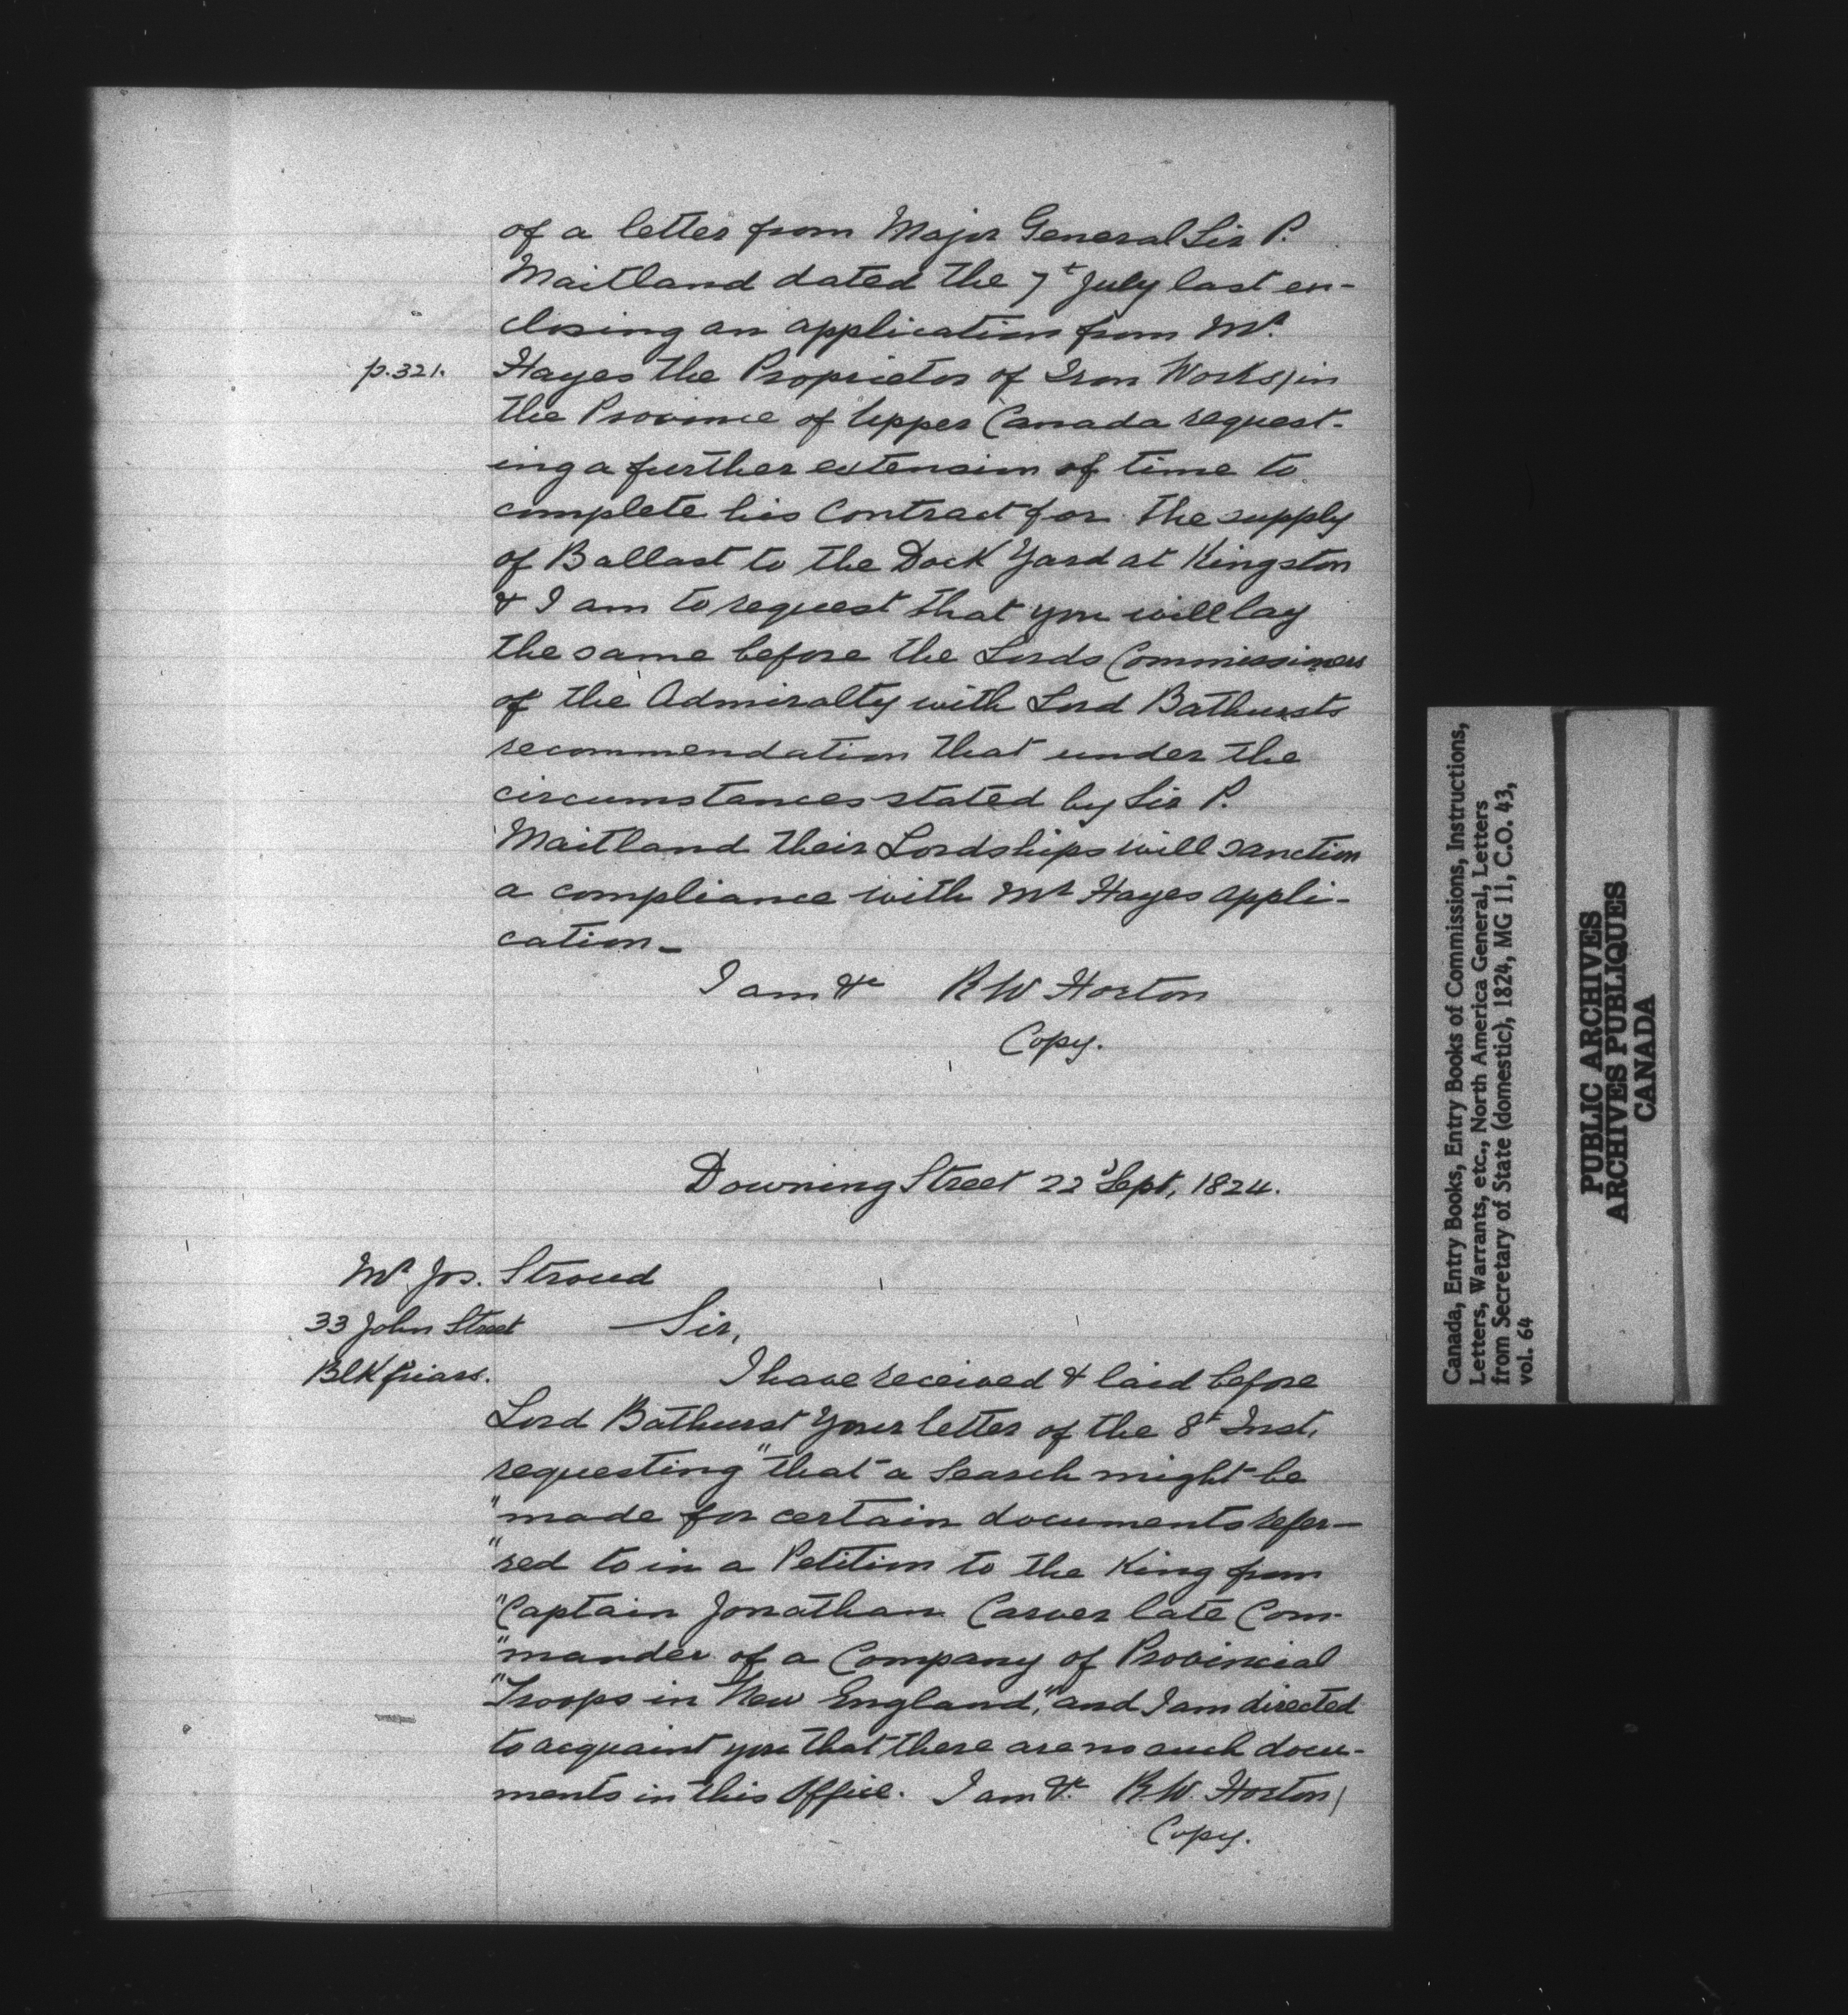 of a letter from Major General Sir P.
Maitland dated the 7t July last en-
closing an application from Mr
p.321. Hayes the Proprietor of Iron Works, in
the Province of Upper Canada request-
ing a further extension of time to
complete his Contract for the supply
of Ballast to the Dock Yard at Kingston
& I am to request that you will lay
the same before the Lords Commissioners
of the Admiralty with Lord Bathursts
recommendation that under the
circumstances stated by Sir P.
Maitland their Lordships will sanction
a compliance with Mr Hayes appli-
cation_
I am &c R W Horton
Copy.
Downing Street 22d Sept, 1824.
Mr Jos. Stroud
33 John Street
Blkfriars.
Sir,
I have received & laid before
Lord Bathurst Your letter of the 8t Inst,
requesting "that a Search might be
"made for certain documents refer-
"red to in a Petition to the King from
"Captain Jonathan Carver late Com-
"mander of a Company of Provincial
"Troops in New England," and I am directed
to acquaint you that there are no such docu-
ments in this Office. I am &c R. W. Horton
Copy.
Canada, Entry Books, Entry Books of Commissions, Instructions,
Letters, Warrants, etc., North America General, Letters
from Secretary of State (domestic), 1824, MG 11, C.O. 43,
vol. 64
PUBLIC ARCHIVES
ARCHIVES PUBLIQUES
CANADA